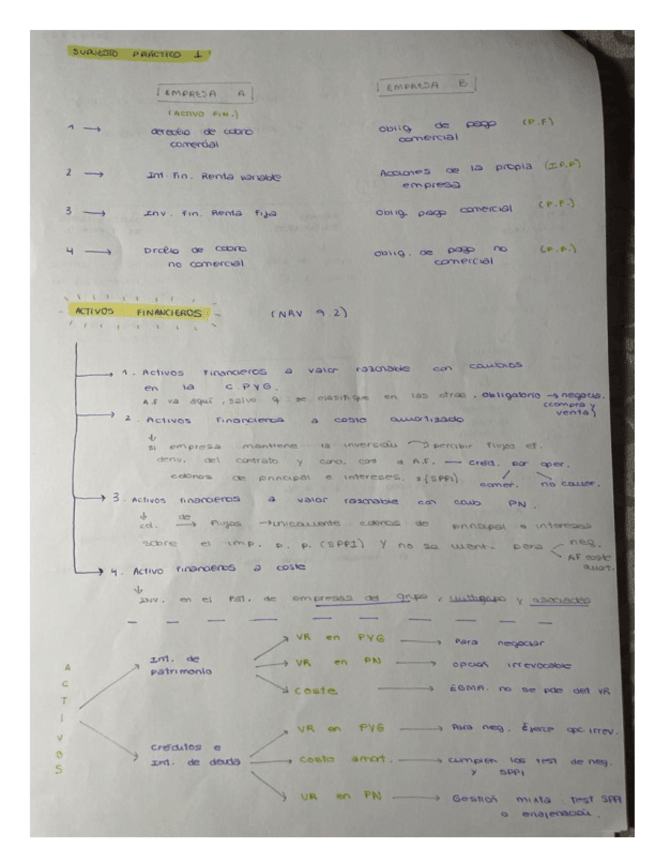 SUPUESTO PRÁCTICO 1
EMPRESA A
EMPRESA B
(ACTIVO FIN.)
1 → derecho de cobro comercial
Oblig de pago comercial (P.F)
2 → Int. Fin. Renta variable
Acciones de la propia empresa (I.P.P)
3 → Inv. Fin. Renta Fija
Oblig. pago comercial (P.F.)
4 → Drcho de cobro no comercial
Oblig. de pago no comercial (P.F.)
ACTIVOS FINANCIEROS (NRV 9.2)
1. Activos Financieros a valor razonable con cambios
en la C. PYG.
A.F va aquí, salvo q se clasifique en las otras, obligatorio → negocia.
(compra y venta)
2. Activos Financieros a coste amortizado
si empresa mantiene la inversión → percibir flujos ef.
deriv. del contrato y cond. con a A.F. — créd. por oper.
cobros de principal e intereses. (SPPI) comer. no comer.
3. Activos financieros a valor razonable con camb PN.
cd. de → flujos → únicamente cobros de principal e intereses
sobre el imp. p. p. (SPPI) y no se mant. para neg.
AF coste amort.
4. Activo Financieros a coste
Inv. en el Pat. de empresas del grupo, multigrupo y asociadas
ACTIVOS
Int. de patrimonio
VR en PYG → Para negociar
VR en PN → opción irrevocable
coste → EGMA. no se pde det VR
Créditos e Int. de deuda
VR en PYG → Para neg. Ejerce opc irrev.
Coste amort. → cumplen los test de neg. y SPPI
VR en PN → Gestión mixta test SPPI o enajenación.